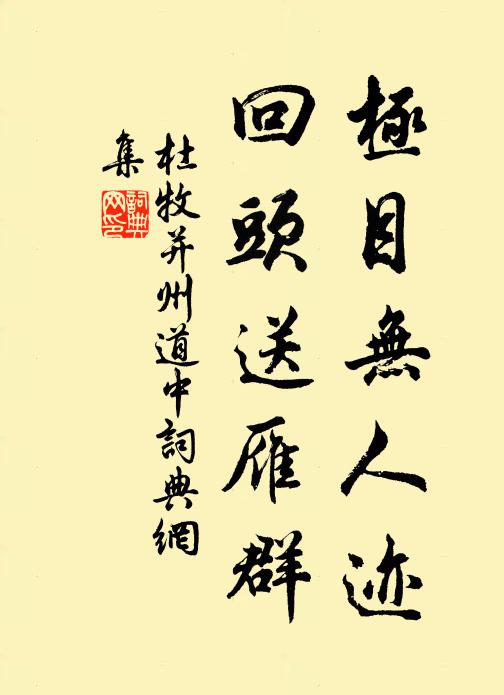 極目無人迹
回頭送雁群
杜牧并州道中詞典網
集
詞典
网印